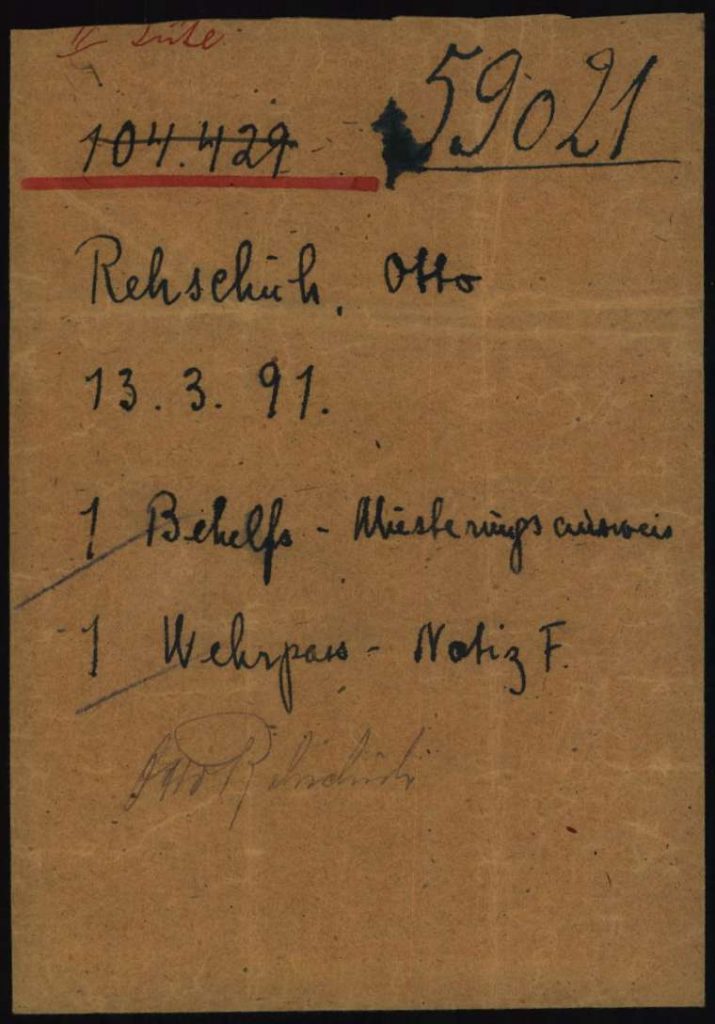 II Tüte
104.429
59021
Rehschuh, Otto
13. 3. 91.
1 Behelfs - Musterungsausweis
1 Wehrpass - Notiz F.
Otto Rehschuh